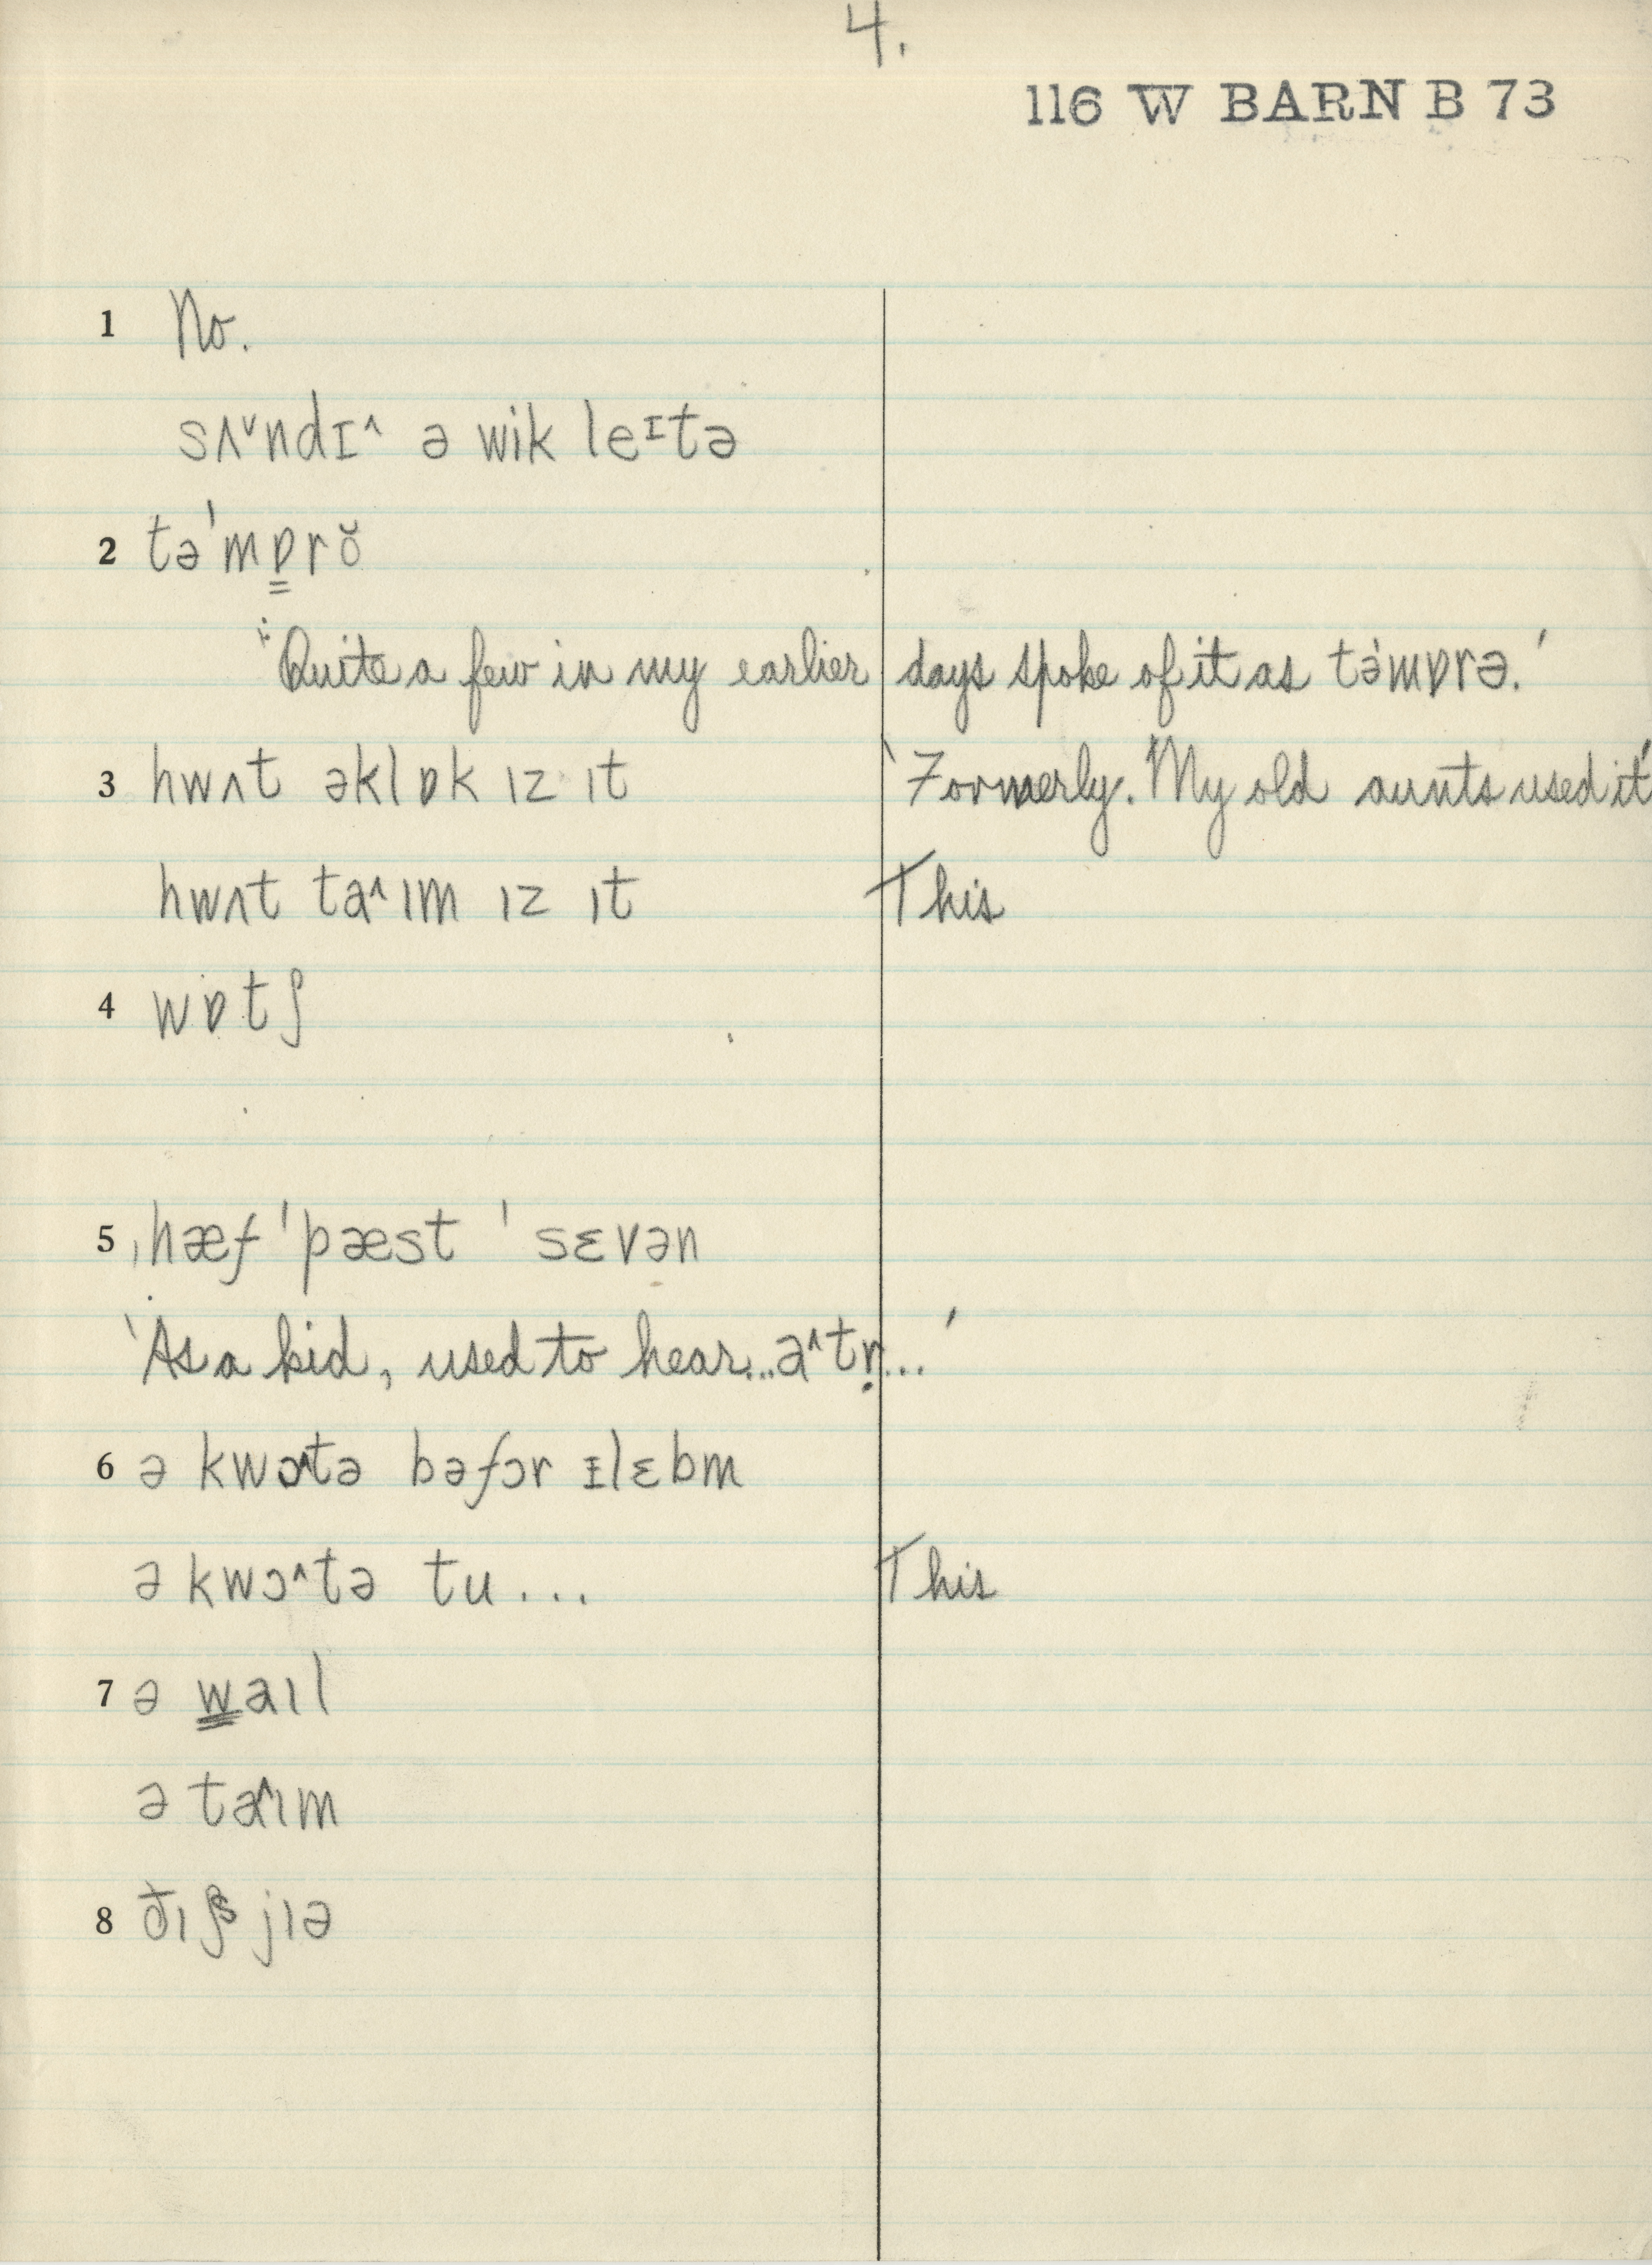 4.
116 W BARN B 73
1 No.
sʌ˅ndɪ˄ ə wik leᶦtə
2 tə'mɒ̳rŏ
"Quite a few in my earlier days spoke of it as tə'mɒrə.'
3 hwʌt əklɒk ɪz ɪt 'Formerly. My old aunts used it'
hwʌt ta˄ɪm ɪz ɪt This
4 wɒtʃ
5 ˌhæf 'pæst 'sɛvən
'As a kid, used to hear...a˄tṛ...'
6 ə kwɔ˄tə bəfɔr ɪlɛbm
ə kwɔ˄tə tu... This
7 ə w̳aɪl
ə ta˄ɪm
8 ðɪʃ jɪə